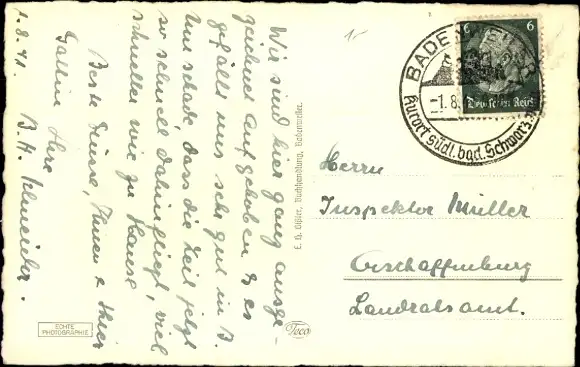 1.8.41.
Wir sind hier ganz ausge-
zeichnet aufgehoben & es
gefällt uns sehr gut in B.
Nur schade, dass die Zeit jetzt
so schnell dahinfliegt, viel
schneller wie zu Hause
Beste Grüsse, Ihnen & Ihrer
Gattin Ihre
B. H.
E. H. Buchhandlung, Badenweiler.
ECHTE
PHOTOGRAPHIE
Teco
BADENWEILER
-1.8.
Kurort südl. bad. Schwarzw
6 6
Deutsches Reich
Herrn
Inspektor Müller
Aschaffenburg
Landratsamt.